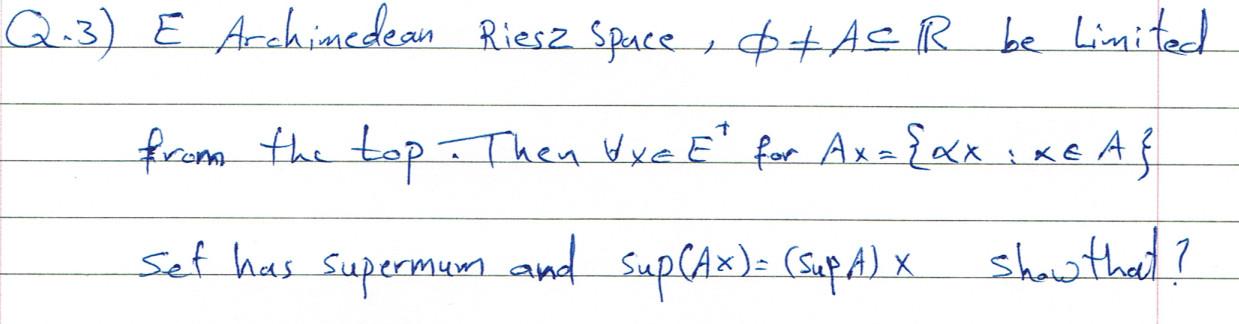 Q.3) E Archimedean Riesz Space, ϕ ≠ A ⊆ ℝ be Limited
from the top. Then ∀x∈E⁺ for Ax = {αx : α∈A}
set has supermum and sup(Ax) = (sup A) x show that?